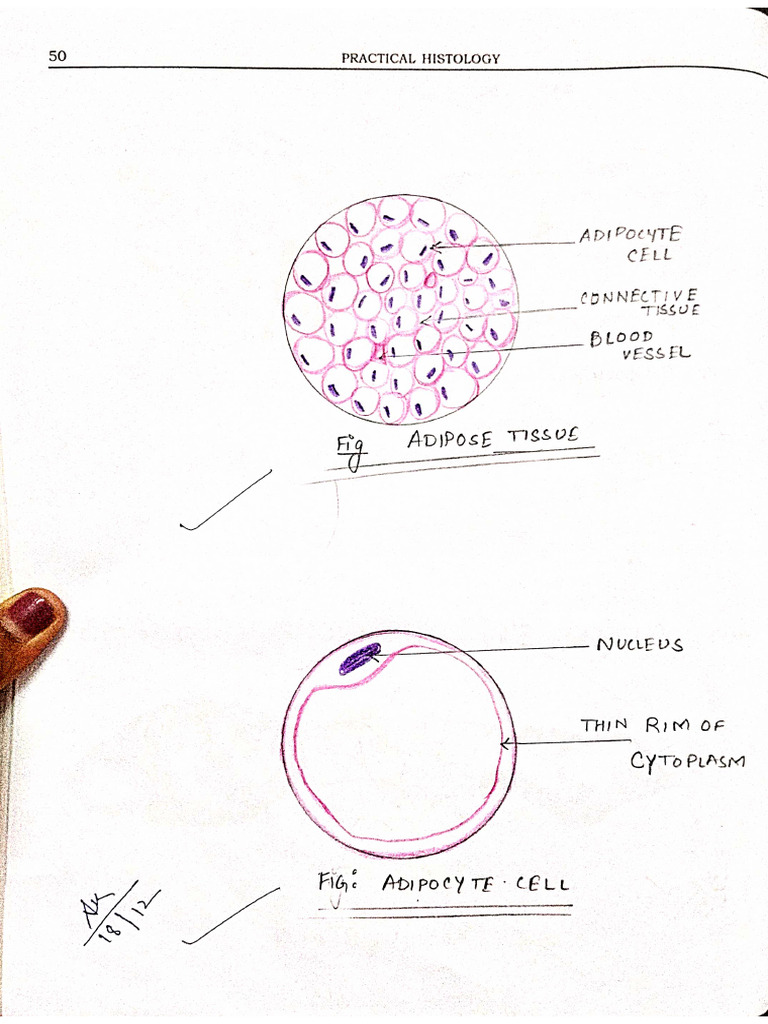 50
PRACTICAL HISTOLOGY
ADIPOCYTE
CELL
CONNECTIVE
TISSUE
BLOOD
VESSEL
Fig ADIPOSE TISSUE
NUCLEUS
THIN RIM OF
CYTOPLASM
FIG: ADIPOCYTE CELL
18/12